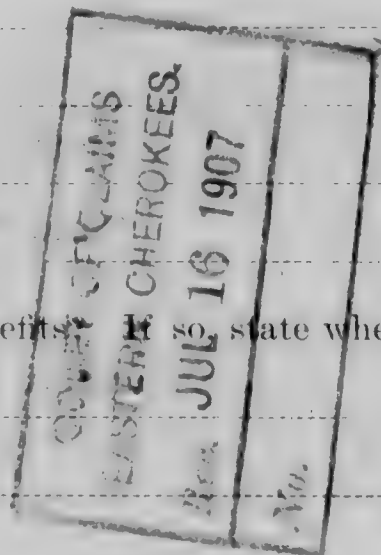 COURT OF CLAIMS
EASTERN CHEROKEES.
Rec. JUL 16 1907
No.
efits? If so, state whe